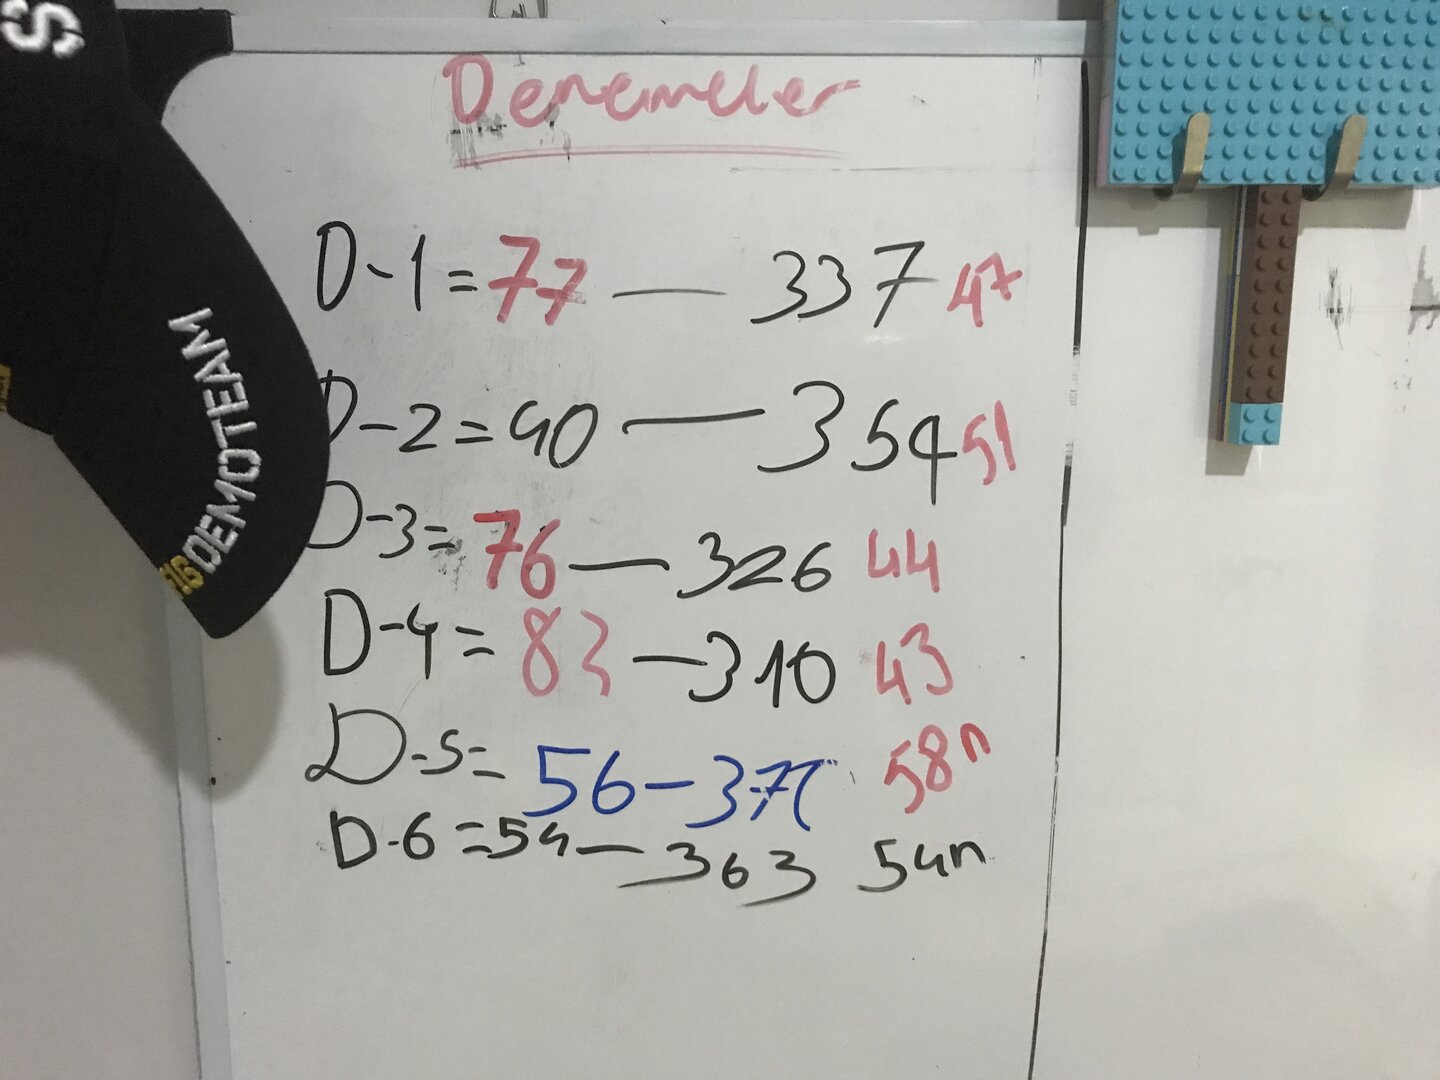 S
DEMOTEAM
Denemeler
D-1=77 — 337 47
D-2=40 — 354 51
D-3=76 — 326 44
D-4=83 — 310 43
D-5=56 — 377 58n
D-6=54 — 363 54n